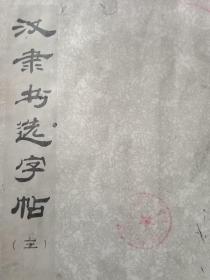 汉隶书选字帖